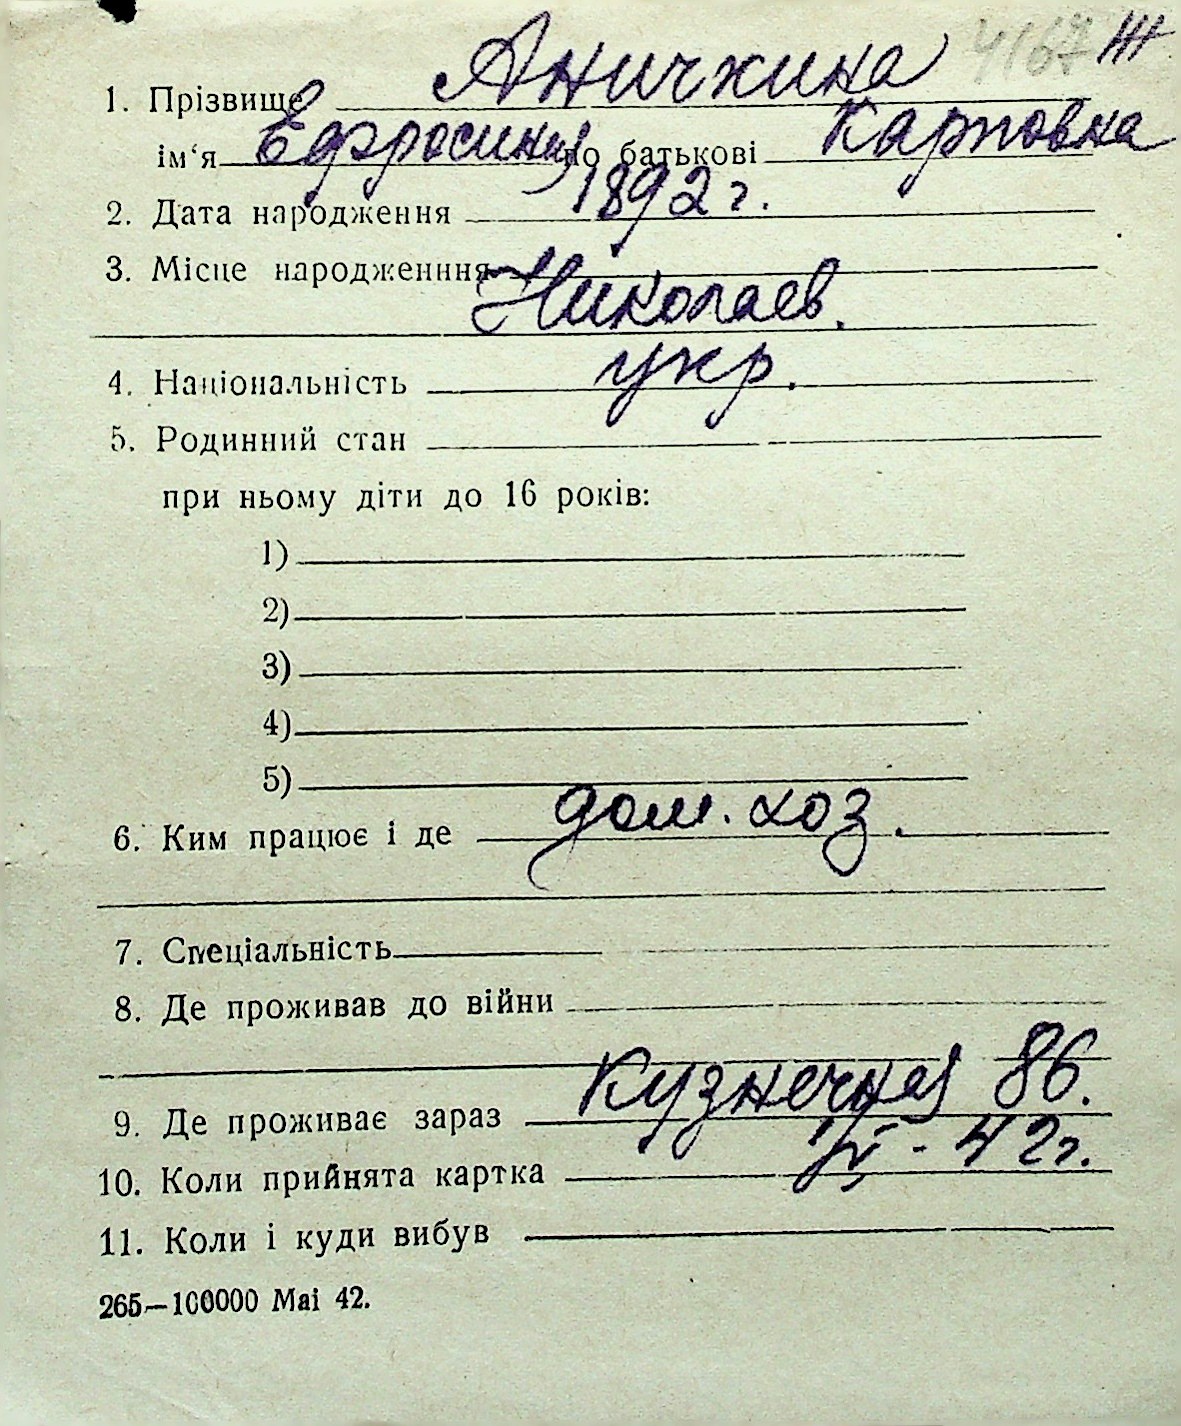 4167 Ж
1. Прізвище Аничкина
ім‘я Ефросиния по батькові Карповна
2. Дата народження 1892 г.
3. Місце народженння
Николаев.
4. Національність укр.
5. Родинний стан
при ньому діти до 16 років:
1)
2)
3)
4)
5)
6. Ким працює і де дом. хоз.
7. Спеціальність
8. Де проживав до війни
9. Де проживає зараз Кузнечная 86.
10. Коли прийнята картка - 42 г.
11. Коли і куди вибув
265—100000 Mai 42.